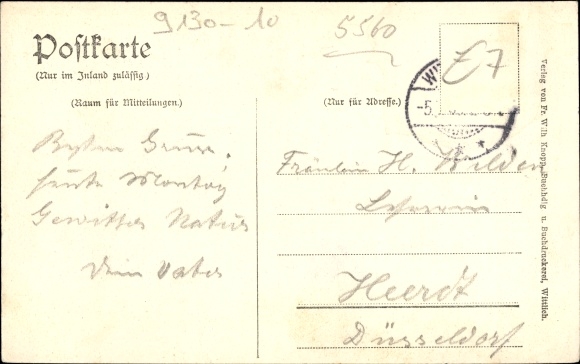 9130-10
5560
Postkarte
(Nur im Inland zulässig)
(Raum für Mitteilungen.)
(Nur für Adresse.)
£7
WIT
-5.
Besten Gruss.
heute Montag
Gewitter Natur
Dein Vater
Fräulein H. Welden
Lehrerin
Heerdt
Düsseldorf
Verlag von Fr. Wilh Knopp, Buchhdlg u. Buchdruckerei, Wittlich.